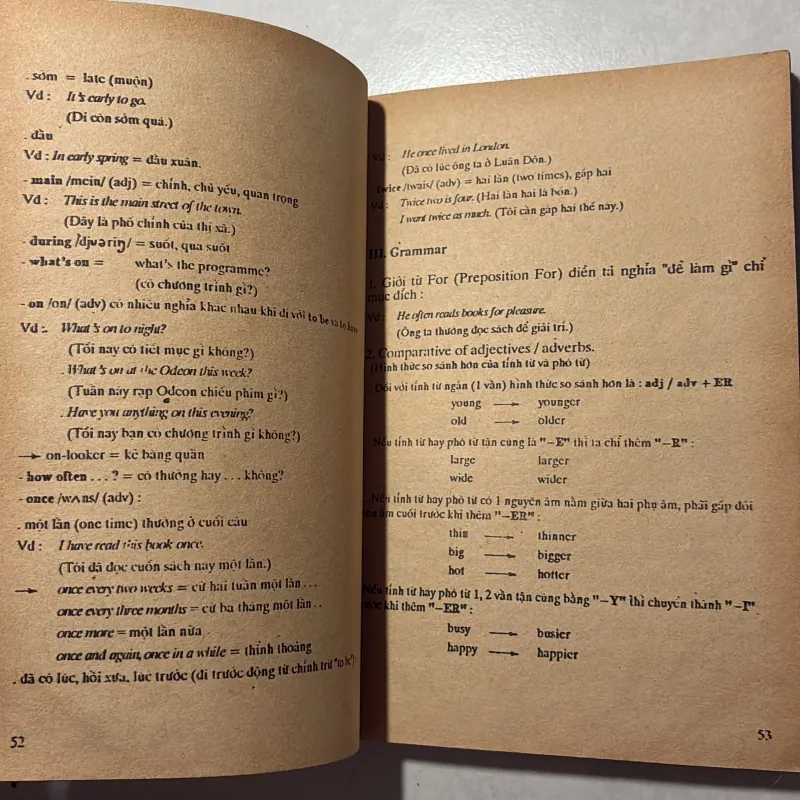 . sớm = late (muộn)
Vd : It's early to go.
(Di còn sớm quá.)
. đầu
Vd : In early spring = đầu xuân.
- main /mein/ (adj) = chính, chủ yếu, quan trọng
Vd : This is the main street of the town.
(Dây là phố chính của thị xã.)
- during /djuəriŋ/ = suốt, qua suốt
- what's on = what's the programme?
(có chương trình gì?)
- on /on/ (adv) có nhiều nghĩa khác nhau khi đi với to be và to have
Vd : What's on to night?
(Tối nay có tiết mục gì không?)
. What's on at the Odeon this week?
(Tuần này rạp Odeon chiếu phim gì?)
. Have you anything on this evening?
(Tối nay bạn có chương trình gì không?)
→ on-looker = kẻ bàng quan
- how often . . . ? = có thường hay . . . không?
- once /wʌns/ (adv) :
. một lần (one time) thường ở cuối câu
Vd : I have read this book once.
(Tôi đã đọc cuốn sách này một lần.)
→ once every two weeks = cứ hai tuần một lần . . .
once every three months = cứ ba tháng một lần . .
once more = một lần nữa
once and again, once in a while = thỉnh thoảng
. đã có lúc, hồi xưa, lúc trước (đi trước động từ chính trừ "to be")
52
Vd : He once lived in London.
(Đã có lúc ông ta ở Luân Dôn.)
twice /twais/ (adv) = hai lần (two times), gấp hai
Vd : Twice two is four. (Hai lần hai là bốn.)
I want twice as much. (Tôi cần gấp hai thế này.)
III. Grammar
1. Giới từ For (Preposition For) diễn tả nghĩa "để làm gì" chỉ
mục đích :
Vd : He often reads books for pleasure.
(Ông ta thường đọc sách để giải trí.)
2. Comparative of adjectives / adverbs.
(Hình thức so sánh hơn của tính từ và phó từ)
. Đối với tính từ ngắn (1 vần) hình thức so sánh hơn là : adj / adv + ER
young → younger
old → older
Nếu tính từ hay phó từ tận cùng là "–E" thì ta chỉ thêm "–R" :
large larger
wide wider
. Nếu tính từ hay phó từ có 1 nguyên âm nằm giữa hai phụ âm, phải gấp đôi
âm cuối trước khi thêm "–ER" :
thin → thinner
big → bigger
hot → hotter
Nếu tính từ hay phó từ 1, 2 vần tận cùng bằng "–Y" thì chuyển thành "–I"
trước khi thêm "–ER" :
busy → busier
happy → happier
53